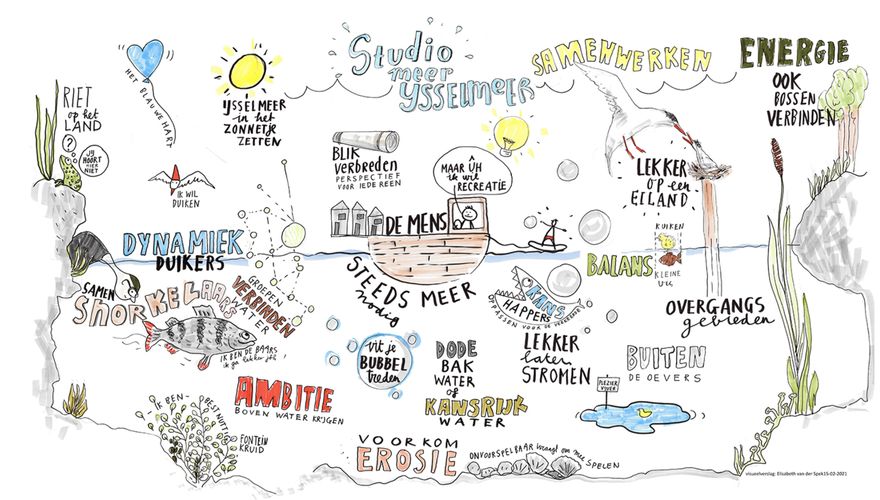 Studio
meer
YSSELMEER
SAMENWERKEN
ENERGIE
OOK
BOSSEN
VERBINDEN
HET BLAUWE HART
RIET
op het
LAND
?
?
JIJ
HOORT
HIER
NIET
IJSSELMEER
in het
ZONNETJE
ZETTEN
BLIK
verbreden
PERSPECTIEF
VOOR IEDEREEN
MAAR ÛH
ik wil
RECREATIE
LEKKER
OP een
EILAND
IK WIL
DUIKEN
DE MENS
DYNAMIEK
DUIKERS
STEEDS MEER
nodig
BALANS
KUIKEN
KLEINE
VIS
SAMEN
SNORKELAARS
GROEPEN
VERBINDEN
WATER
KANS
HAPPERS
OPPASSEN VOOR DE
OVERGANGS
gebieden
IK BEN DE BAARS
ik ga lekker
uit je
BUBBEL
treden
DODE
BAK
WATER
of
KANSRIJK
WATER
LEKKER
laten
STROMEN
BUITEN
DE OEVERS
PLEZIER
VIJVER
AMBITIE
BOVEN WATER KRIJGEN
IK BEN
BEST NUTTIG
FONTEIN
KRUID
VOORKOM
EROSIE
ONVOORSPELBAAR
om mee
SPELEN
visueelverslag: Elisabeth van der Spek15-02-2021